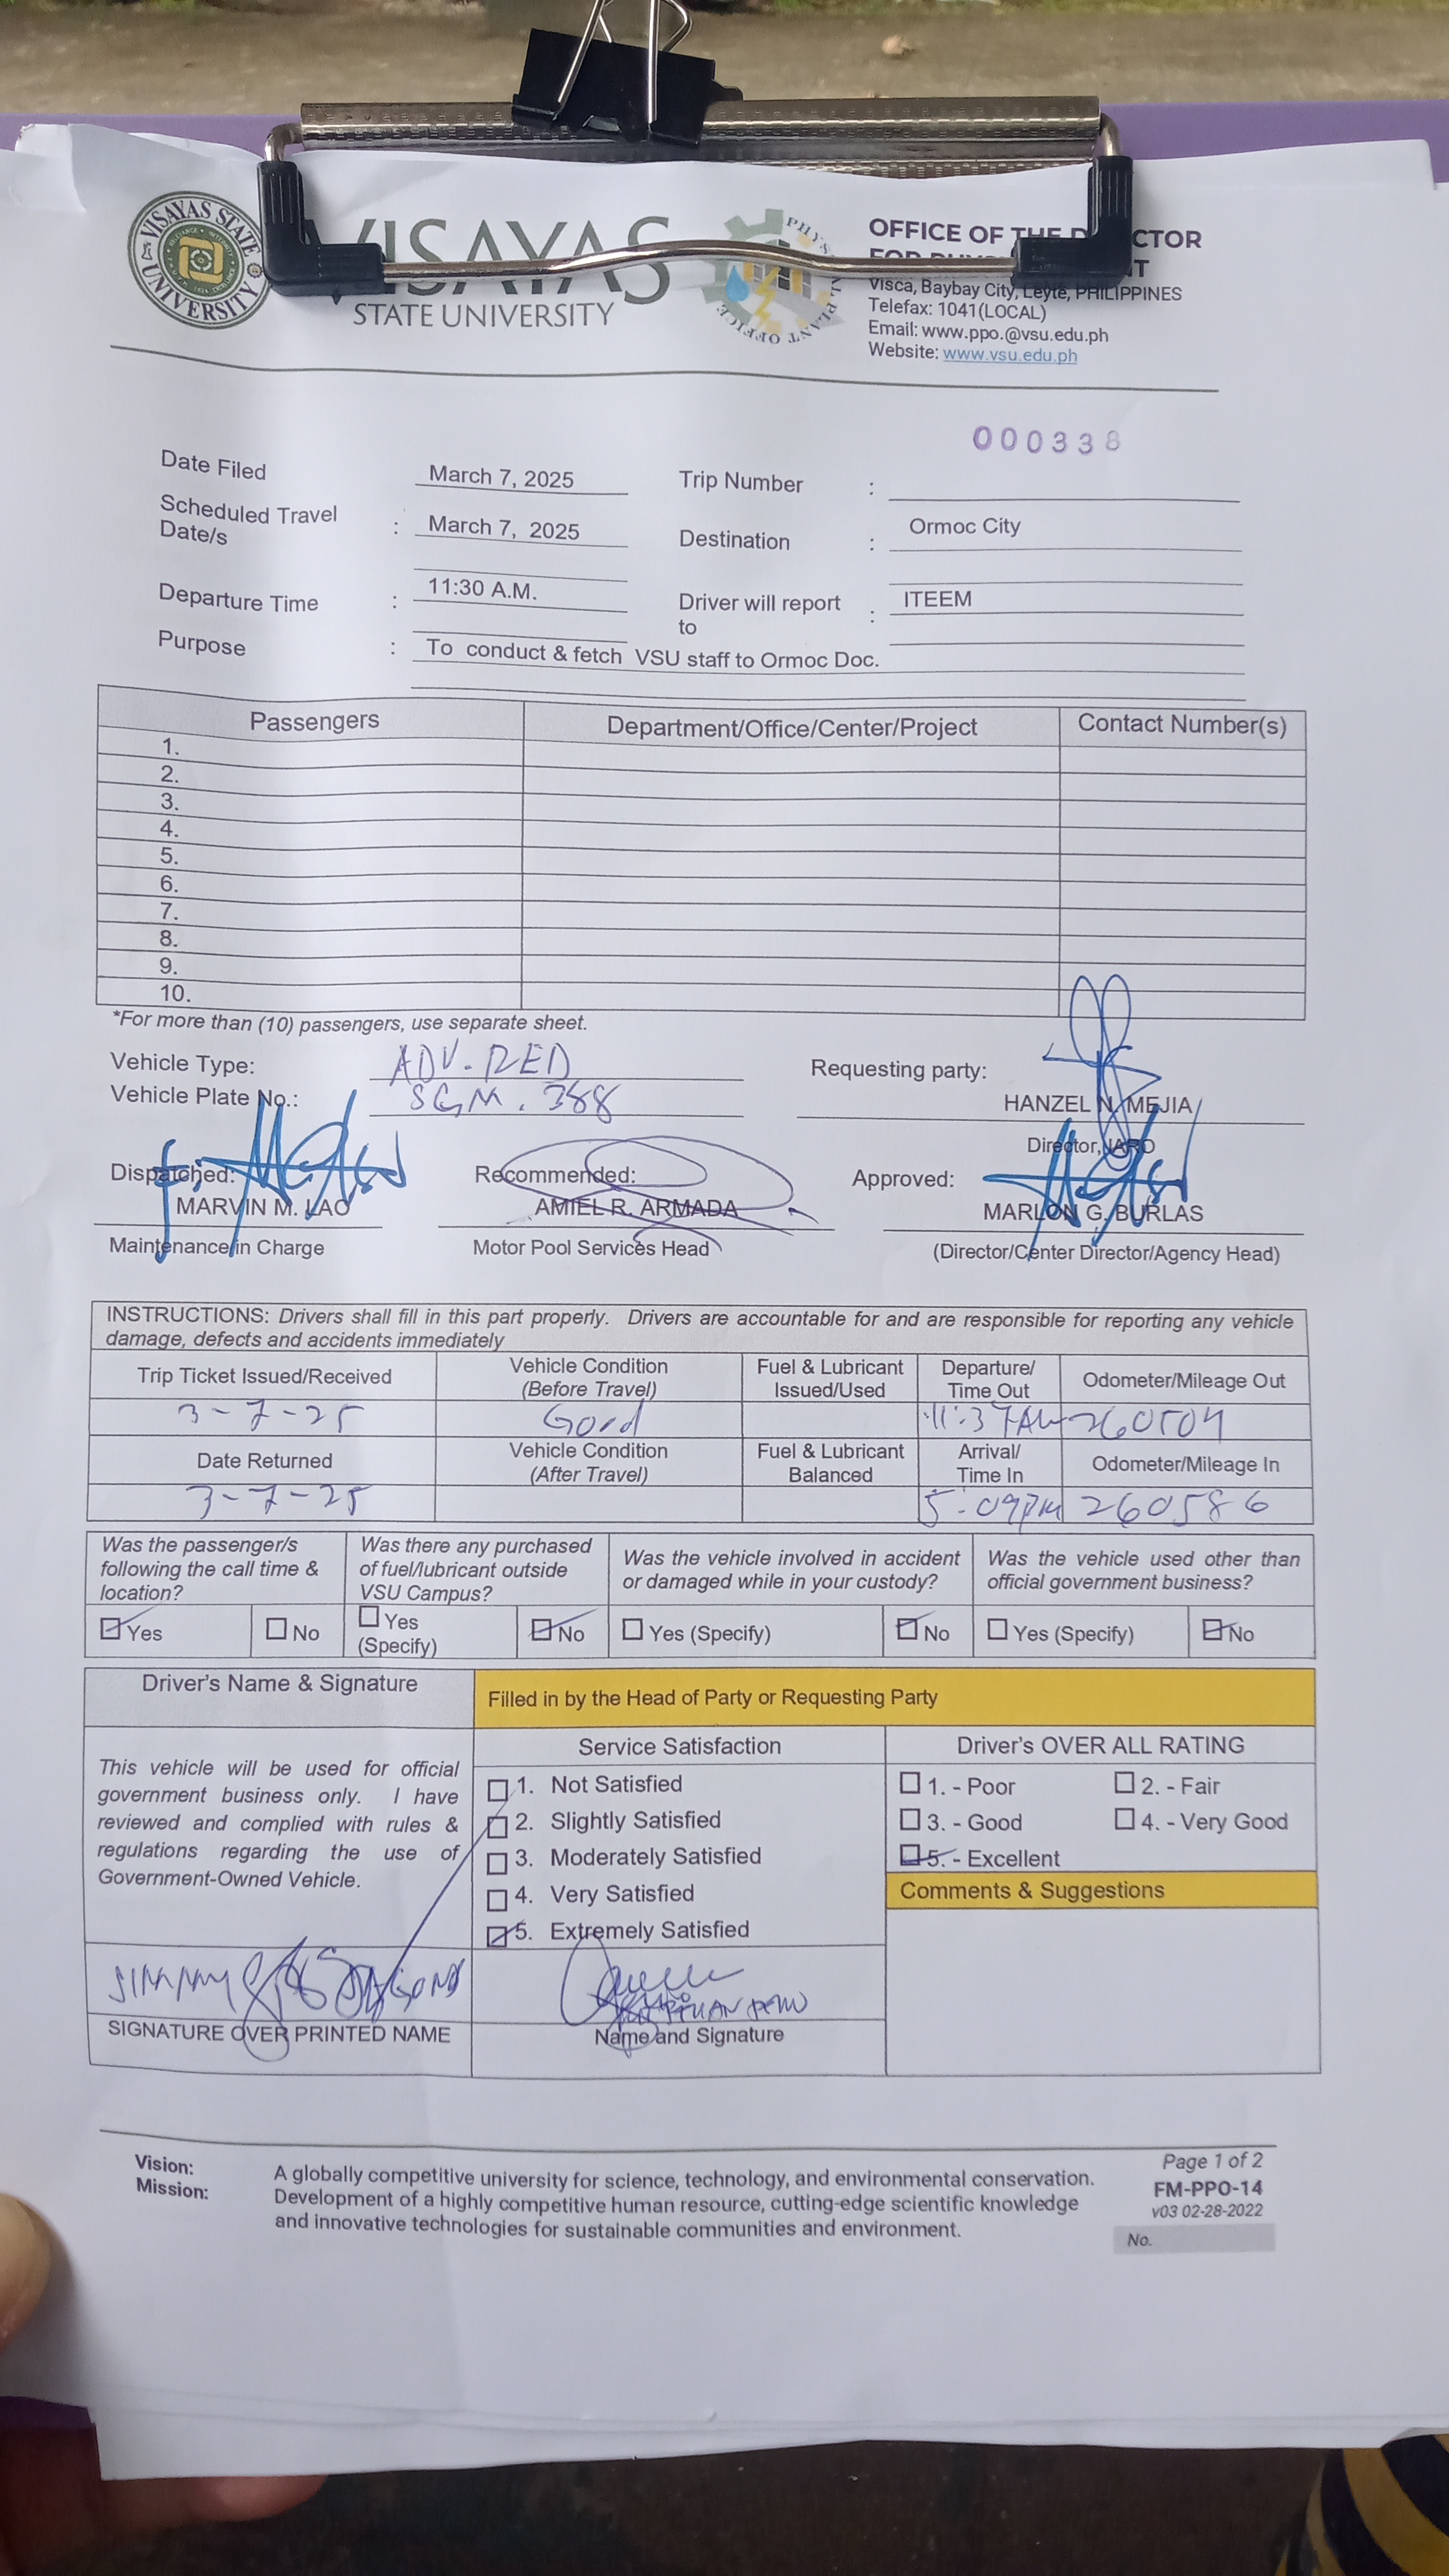 VISAYAS STATE UNIVERSITY
VISAYAS
STATE UNIVERSITY
PHYSICAL PLANT OFFICE
OFFICE OF THE DIRECTOR
Visca, Baybay City, Leyte, PHILIPPINES
Telefax: 1041(LOCAL)
Email: www.ppo.@vsu.edu.ph
Website: www.vsu.edu.ph
000338
Date Filed March 7, 2025 Trip Number :
Scheduled Travel Date/s : March 7, 2025 Destination : Ormoc City
Departure Time : 11:30 A.M. Driver will report to : ITEEM
Purpose : To conduct & fetch VSU staff to Ormoc Doc.
Passengers Department/Office/Center/Project Contact Number(s)
1.
2.
3.
4.
5.
6.
7.
8.
9.
10.
*For more than (10) passengers, use separate sheet.
Vehicle Type: ADV. RED Requesting party:
Vehicle Plate No.: SGM. 388
HANZEL N. MEJIA
Director,
Dispatched: Recommended: Approved:
MARVIN M. LAO AMIEL R. ARMADA MARLON G. BURLAS
Maintenance in Charge Motor Pool Services Head (Director/Center Director/Agency Head)
INSTRUCTIONS: Drivers shall fill in this part properly. Drivers are accountable for and are responsible for reporting any vehicle
damage, defects and accidents immediately
Trip Ticket Issued/Received Vehicle Condition (Before Travel) Fuel & Lubricant Issued/Used Departure/ Time Out Odometer/Mileage Out
3-7-25 Good 11:37AM 260504
Date Returned Vehicle Condition (After Travel) Fuel & Lubricant Balanced Arrival/ Time In Odometer/Mileage In
3-7-25 5:09PM 260586
Was the passenger/s following the call time & location? Was there any purchased of fuel/lubricant outside VSU Campus? Was the vehicle involved in accident or damaged while in your custody? Was the vehicle used other than official government business?
Yes No Yes (Specify) No Yes (Specify) No Yes (Specify) No
Driver's Name & Signature
Filled in by the Head of Party or Requesting Party
This vehicle will be used for official
government business only. I have
reviewed and complied with rules &
regulations regarding the use of
Government-Owned Vehicle.
Service Satisfaction
1. Not Satisfied
2. Slightly Satisfied
3. Moderately Satisfied
4. Very Satisfied
5. Extremely Satisfied
Driver's OVER ALL RATING
1. - Poor 2. - Fair
3. - Good 4. - Very Good
5. - Excellent
Comments & Suggestions
SIGNATURE OVER PRINTED NAME
Name and Signature
Vision: A globally competitive university for science, technology, and environmental conservation.
Mission: Development of a highly competitive human resource, cutting-edge scientific knowledge
and innovative technologies for sustainable communities and environment.
Page 1 of 2
FM-PPO-14
v03 02-28-2022
No.